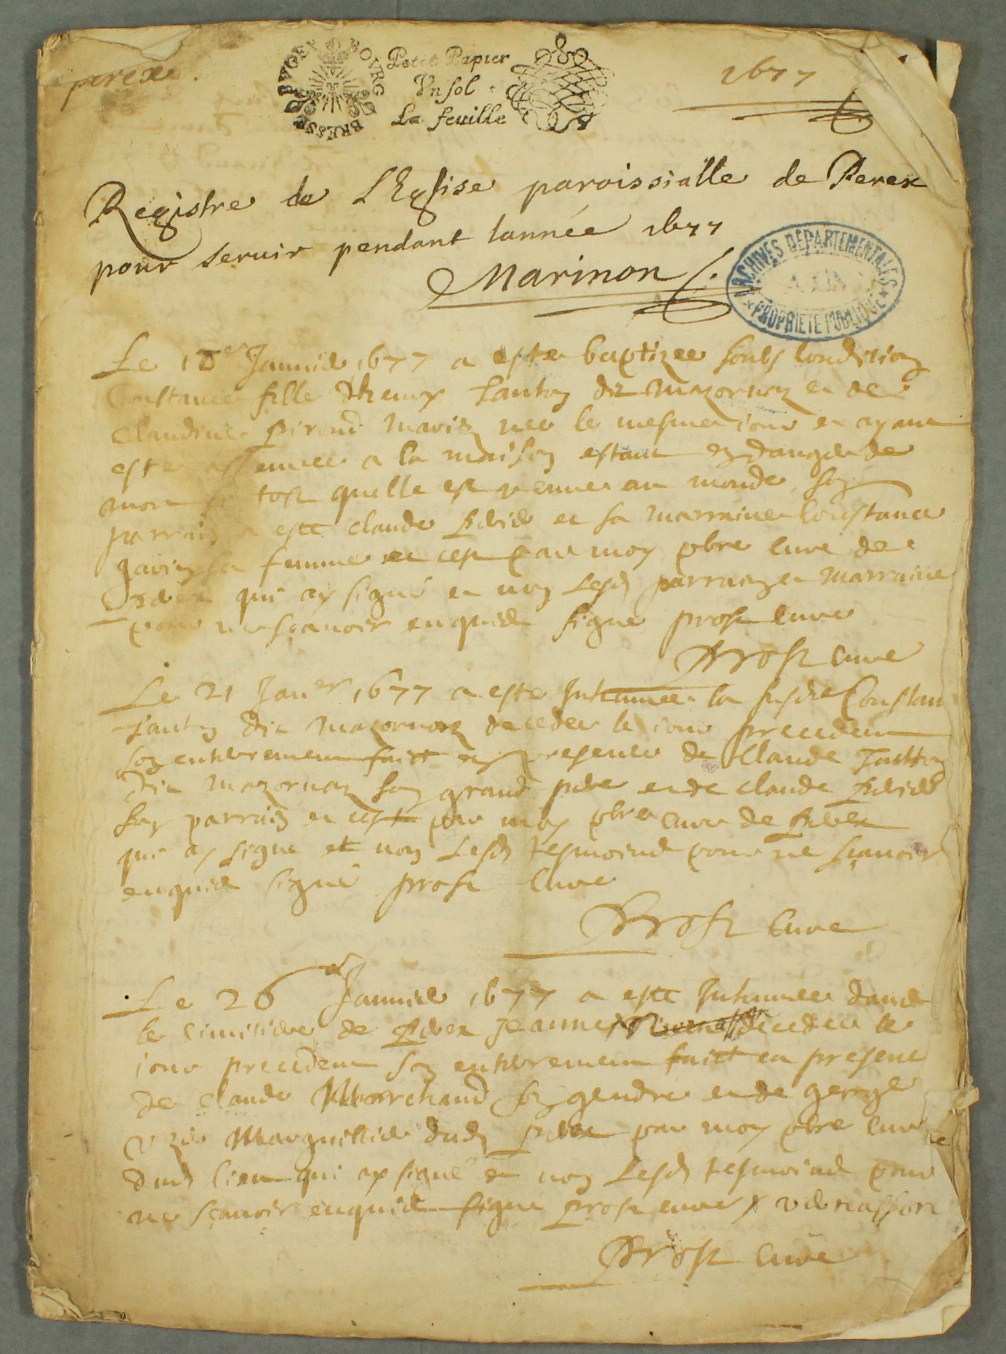 perex.
BVGEY BOVRG BRESSE
Petit Papier
Vn sol
La feuille
1677
Registre de L'Eglise paroissialle de Perex
pour servir pendant lannée 1677
Marinon
ARCHIVES DEPARTEMENTALES
AIN
PROPRIETE PUBLIQUE
Le 1677 a este baptizee soubs condition
Constance fille dit Mazornay et de
Claudine mariez nee le mesme jour et ayant
este a la maison estant en danger de
mort si tost quelle est venue au monde son
parrain a este Claude et sa marraine Constance
sa femme et ce par moy pbre cure de
qui ay signé et non lesd parrain et marraine
pour ne sçavoir enquis signe prost cure
Prost cure
Le 21 Janer 1677 a este Inhumee la susde Constance
dit Mazornay decedee le jour precedent
son enterrement faict en presence de Claude
dit Mazornay son grand pere et de Claude
son parrain et ce par moy pbre cure de
qui ay signe et non lesd tesmoins pour ne sçavoir
enquis signé prost cure
Prost cure
Le 26 Janvier 1677 a este Inhumee dans
le cimitiere de Perex Jeanne decedee le
jour precedent son enterrement faict en presence
de Claude Marchand son gendre et de george
Marguillier dud Perex par moy pbre cure
dud lieu qui ay signé et non lesd tesmoins pour
ne sçavoir enquis signe prost cure
Prost cure